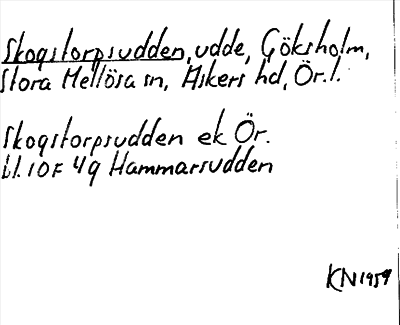 Skogstorpsudden, udde, Göksholm,
Stora Mellösa sn, Askers hd, Ör. l.
Skogstorpsudden ek Ör.
bl. 10 F 4 g Hammarsudden
KN 1959